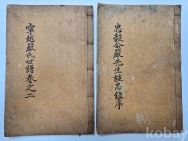 忠毅公嚴先生旌忠錄序
寧越嚴氏世譜卷之二
kobay